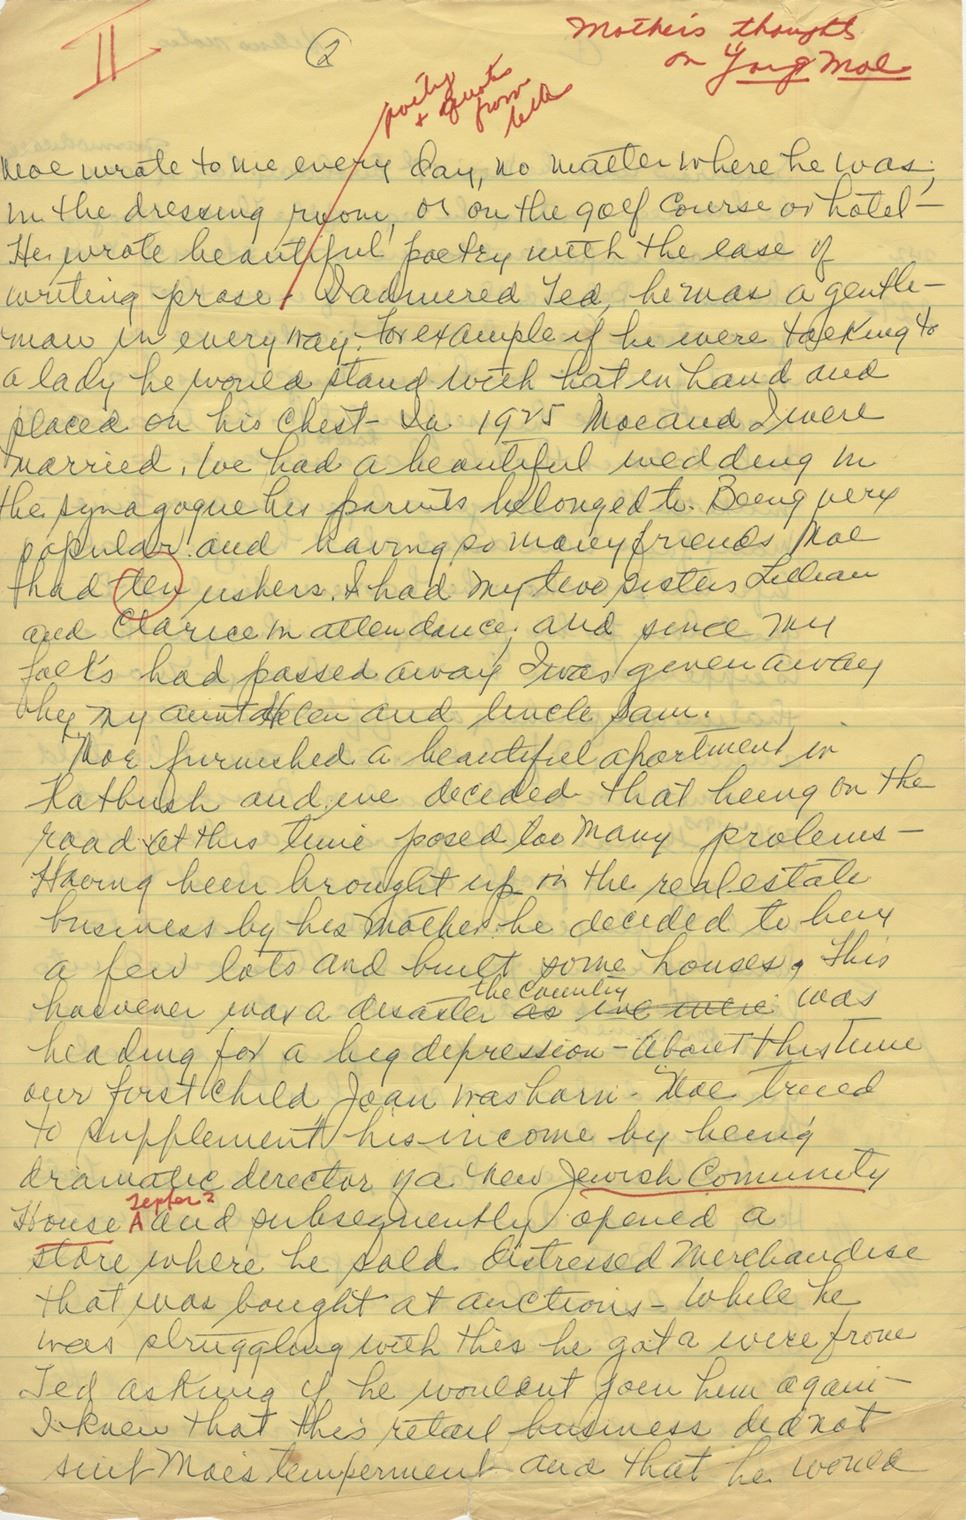 II
2
Mother's thoughts
on Young Moe
poetry
+ quotes
from
Moe wrote to me every day, no matter where he was;
in the dressing room, or on the golf course or hotel—
He wrote beautiful poetry with the ease of
writing prose. I admired Ted, he was a gentle-
man in every way; for example if he were talking to
a lady he would stand with hat in hand and
placed on his chest— In 1925 Moe and I were
married. We had a beautiful wedding in
the synagogue his parents belonged to. Being very
popular and having so many friends Moe
had ten ushers. I had my two sisters Lillian
and Clarice in attendance; and since my
folk's had passed away I was given away
by my aunt Helen and Uncle Sam.
Moe furnished a beautiful apartment in
Flatbush and we decided that being on the
road at this time posed too many problems—
Having been brought up in the real estate
business by his Mother he decided to buy
a few lots and built some houses, This
the country
however was a disaster as we were was
heading for a big depression— About this time
our first child Joan was born. Moe tried
to supplement his income by being
dramatic director of a new Jewish Comunity
Temple?
House and subsequently opened a
store where he sold distressed merchandise
that was bought at auctions— While he
was struggling with this he got a wire from
Ted asking if he wouldnt join him again—
I knew that this retail business did not
suit Moe's temperment and that he would